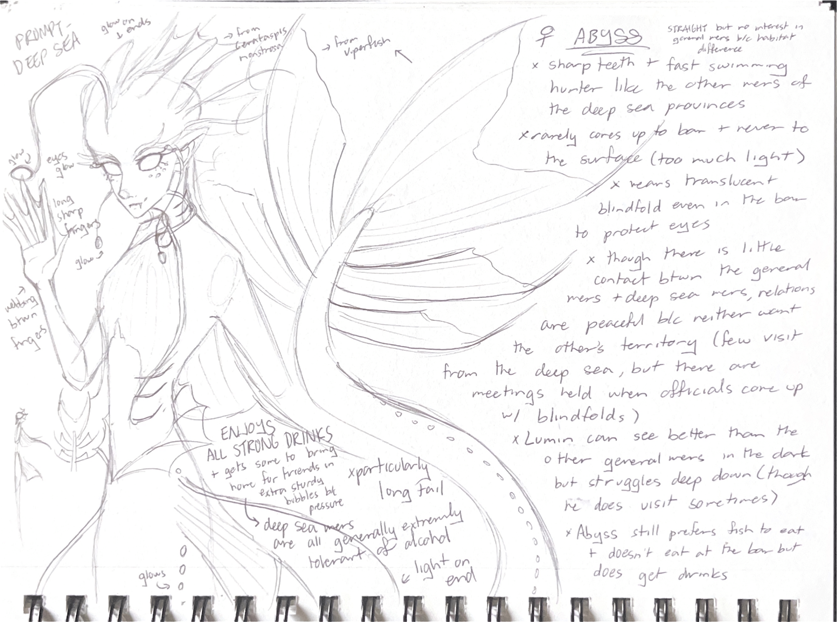 PROMPT-
DEEP SEA
glow on
ends
from
Cerataspis
monstrosa
from
viperfish
♀ ABYSS
STRAIGHT but no interest in
general mers b/c habitat
difference
x sharp teeth + fast swimming
hunter like the other mers of
the deep sea provinces
x rarely comes up to bar + never to
the surface (too much light)
x wears translucent
blindfold even in the bar
to protect eyes
x though there is little
contact btwn the general
mers + deep sea mers, relations
are peaceful b/c neither want
the other's territory (few visit
from the deep sea, but there are
meetings held when officials come up
w/ blindfolds)
x Lumin can see better than the
other general mers in the dark
but struggles deep down (though
he does visit sometimes)
x Abyss still prefers fish to eat
+ doesn't eat at the bar but
does get drinks
glow
eyes
glow
long
sharp
fingers
glow
webbing
btwn
fingers
ENJOYS
ALL STRONG DRINKS
+ gets some to bring
home for friends in
extra sturdy
bubbles b/c
pressure
deep sea mers
are all generally extremely
tolerant of alcohol
x particularly
long tail
light on
end
glows